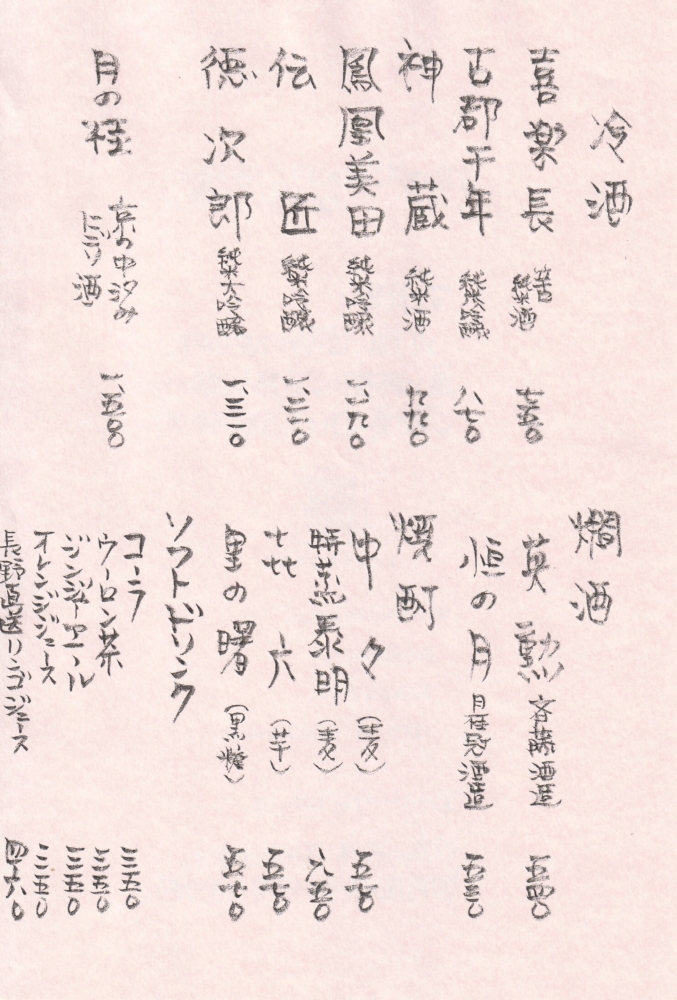 冷酒
喜楽長 辛口純米酒 七五〇
古都千年 純米吟醸 八七〇
神蔵 純米酒 九九〇
鳳凰美田 純米吟醸
伝匠 純米吟醸
徳次郎 純米大吟醸
月の桂 京の中汲み
にごり酒 一、五〇〇
燗酒
英勲 斉藤酒造 五四〇
恒の月 月桂冠酒造 五三〇
焼酎
中々（麦） 五七〇
特蒸泰明（麦） 六五〇
㐂六（芋） 五七〇
里の曙（黒糖） 五七〇
ソフトドリンク
コーラ 三五〇
ウーロン茶 三五〇
ジンジャーエール 三五〇
オレンジジュース 三五〇
長野直送リンゴジュース 四六〇